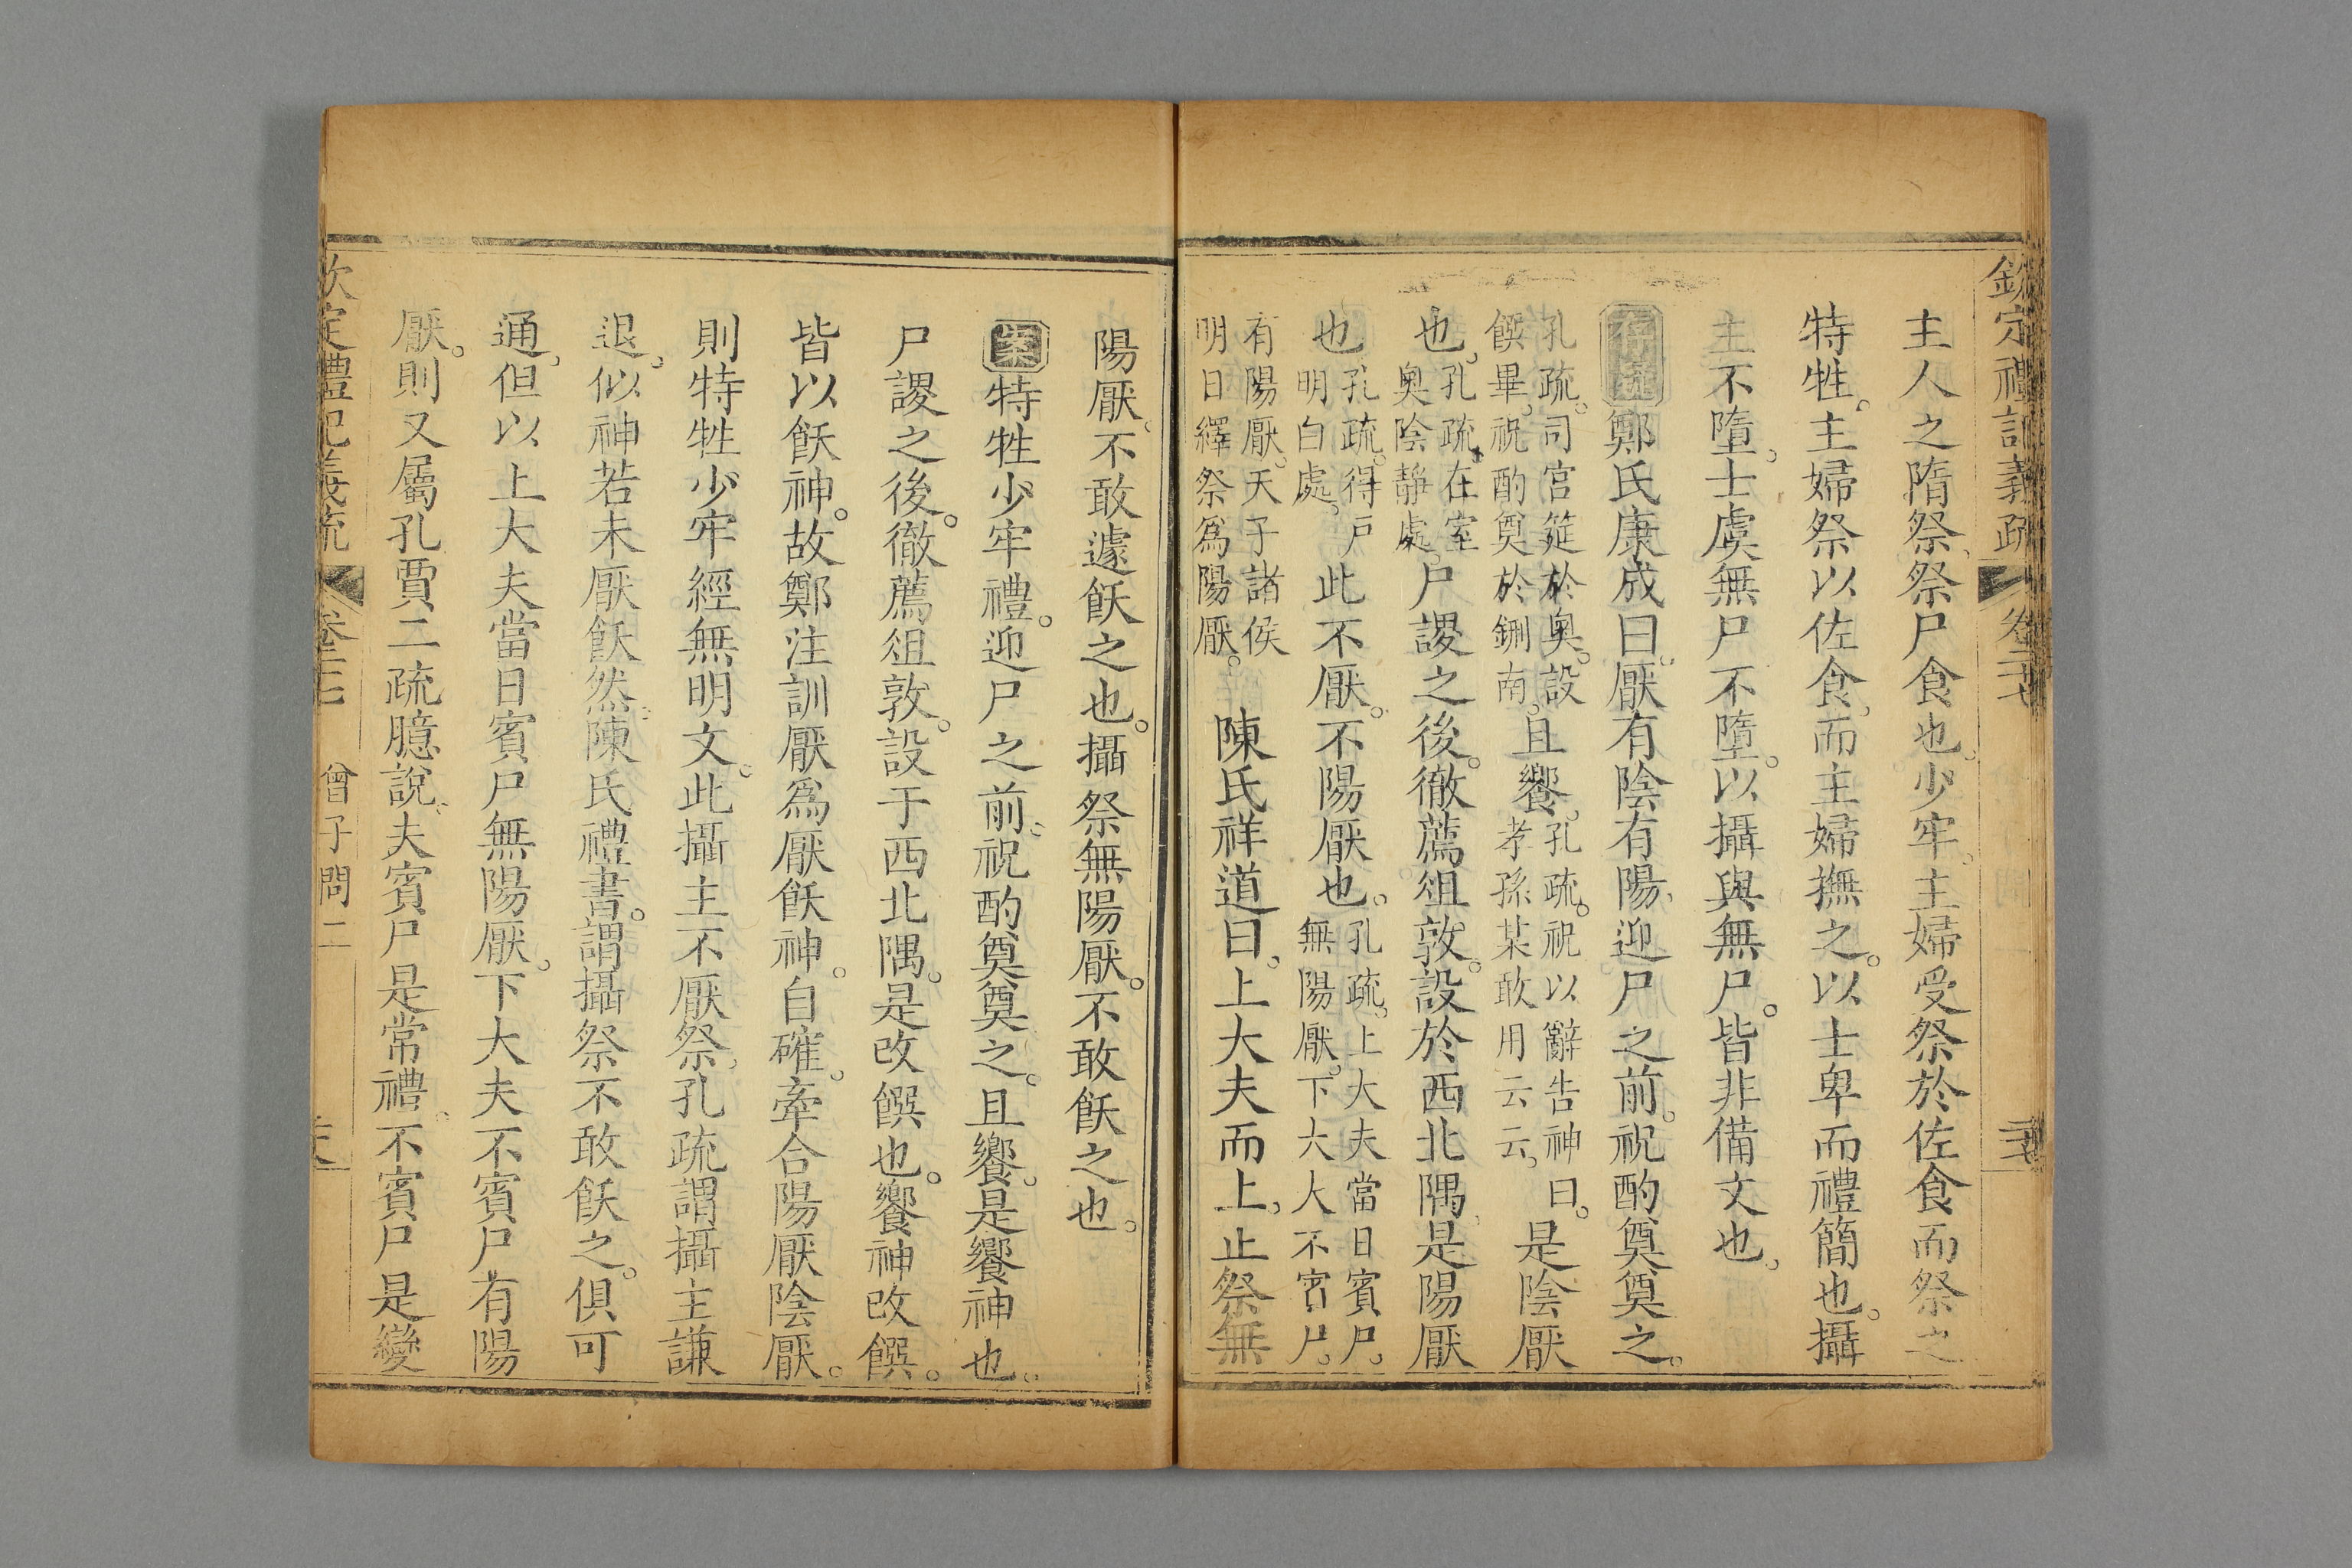 欽定禮記義疏 卷二十七
主人之隋祭祭尸食也少牢主婦受祭於佐食而祭之
特牲主婦祭以佐食而主婦撫之以士卑而禮簡也攝
主不墮士虞無尸不墮以攝與無尸皆非備文也
存疑鄭氏康成曰厭有陰有陽迎尸之前祝酌奠奠之
孔疏司宮筵於奧設
饌畢祝酌奠於鉶南
且饗
孔疏祝以辭告神曰
孝孫某敢用云云
是陰厭
也
孔疏在室
奧陰靜處
尸謖之後徹薦俎敦設於西北隅是陽厭
也
孔疏得戶
明白處
此不厭不陽厭也
孔疏上大夫當日賓尸
無陽厭下大夫不賓尸
有陽厭天子諸侯
明日繹祭為陽厭
陳氏祥道曰上大夫而上止祭無
陽厭不敢遽飫之也攝祭無陽厭不敢飫之也
案特牲少牢禮迎尸之前祝酌奠奠之且饗是饗神也
尸謖之後徹薦俎敦設于西北隅是改饌也饗神改饌
皆以飫神故鄭注訓厭為厭飫神自確牽合陽厭陰厭
則特牲少牢經無明文此攝主不厭祭孔疏謂攝主謙
退似神若未厭飫然陳氏禮書謂攝祭不敢飫之俱可
通但以上大夫當日賓尸無陽厭下大夫不賓尸有陽
厭則又屬孔賈二疏臆說夫賓尸是常禮不賓尸是變
欽定禮記義疏 卷二十七 曾子問二